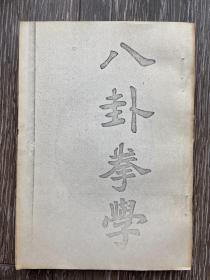 八卦拳學